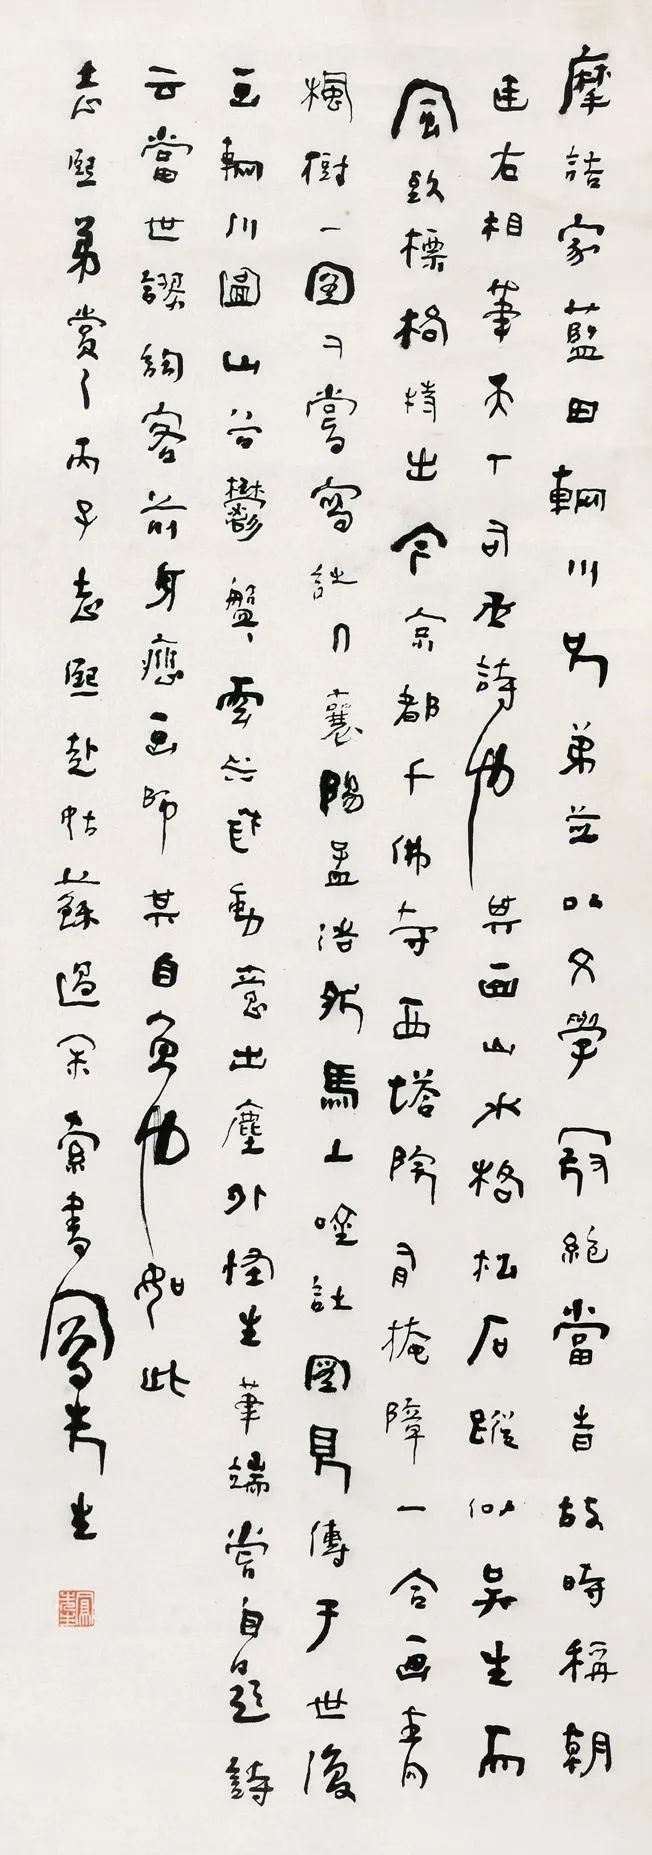 摩詰家藍田輞川兄弟並以文學冠絕當旹故時稱朝
廷右相筆天丅司丞詩也其画山水格松石蹤似吳生而
風致標格特出今京都千佛寺西塔院有掩障一合画青
楓樹一圖又嘗寫詩人襄陽孟浩然馬上吟詩圖見傳于世復
画輞川圖山谷鬱盤〻雲水飛動意出塵外怪生筆端嘗自題詩
云當世謬詞客前身應画師其自負也如此
志熙弟賞之丙子志熙赴姑蘇過余索書鳳先生